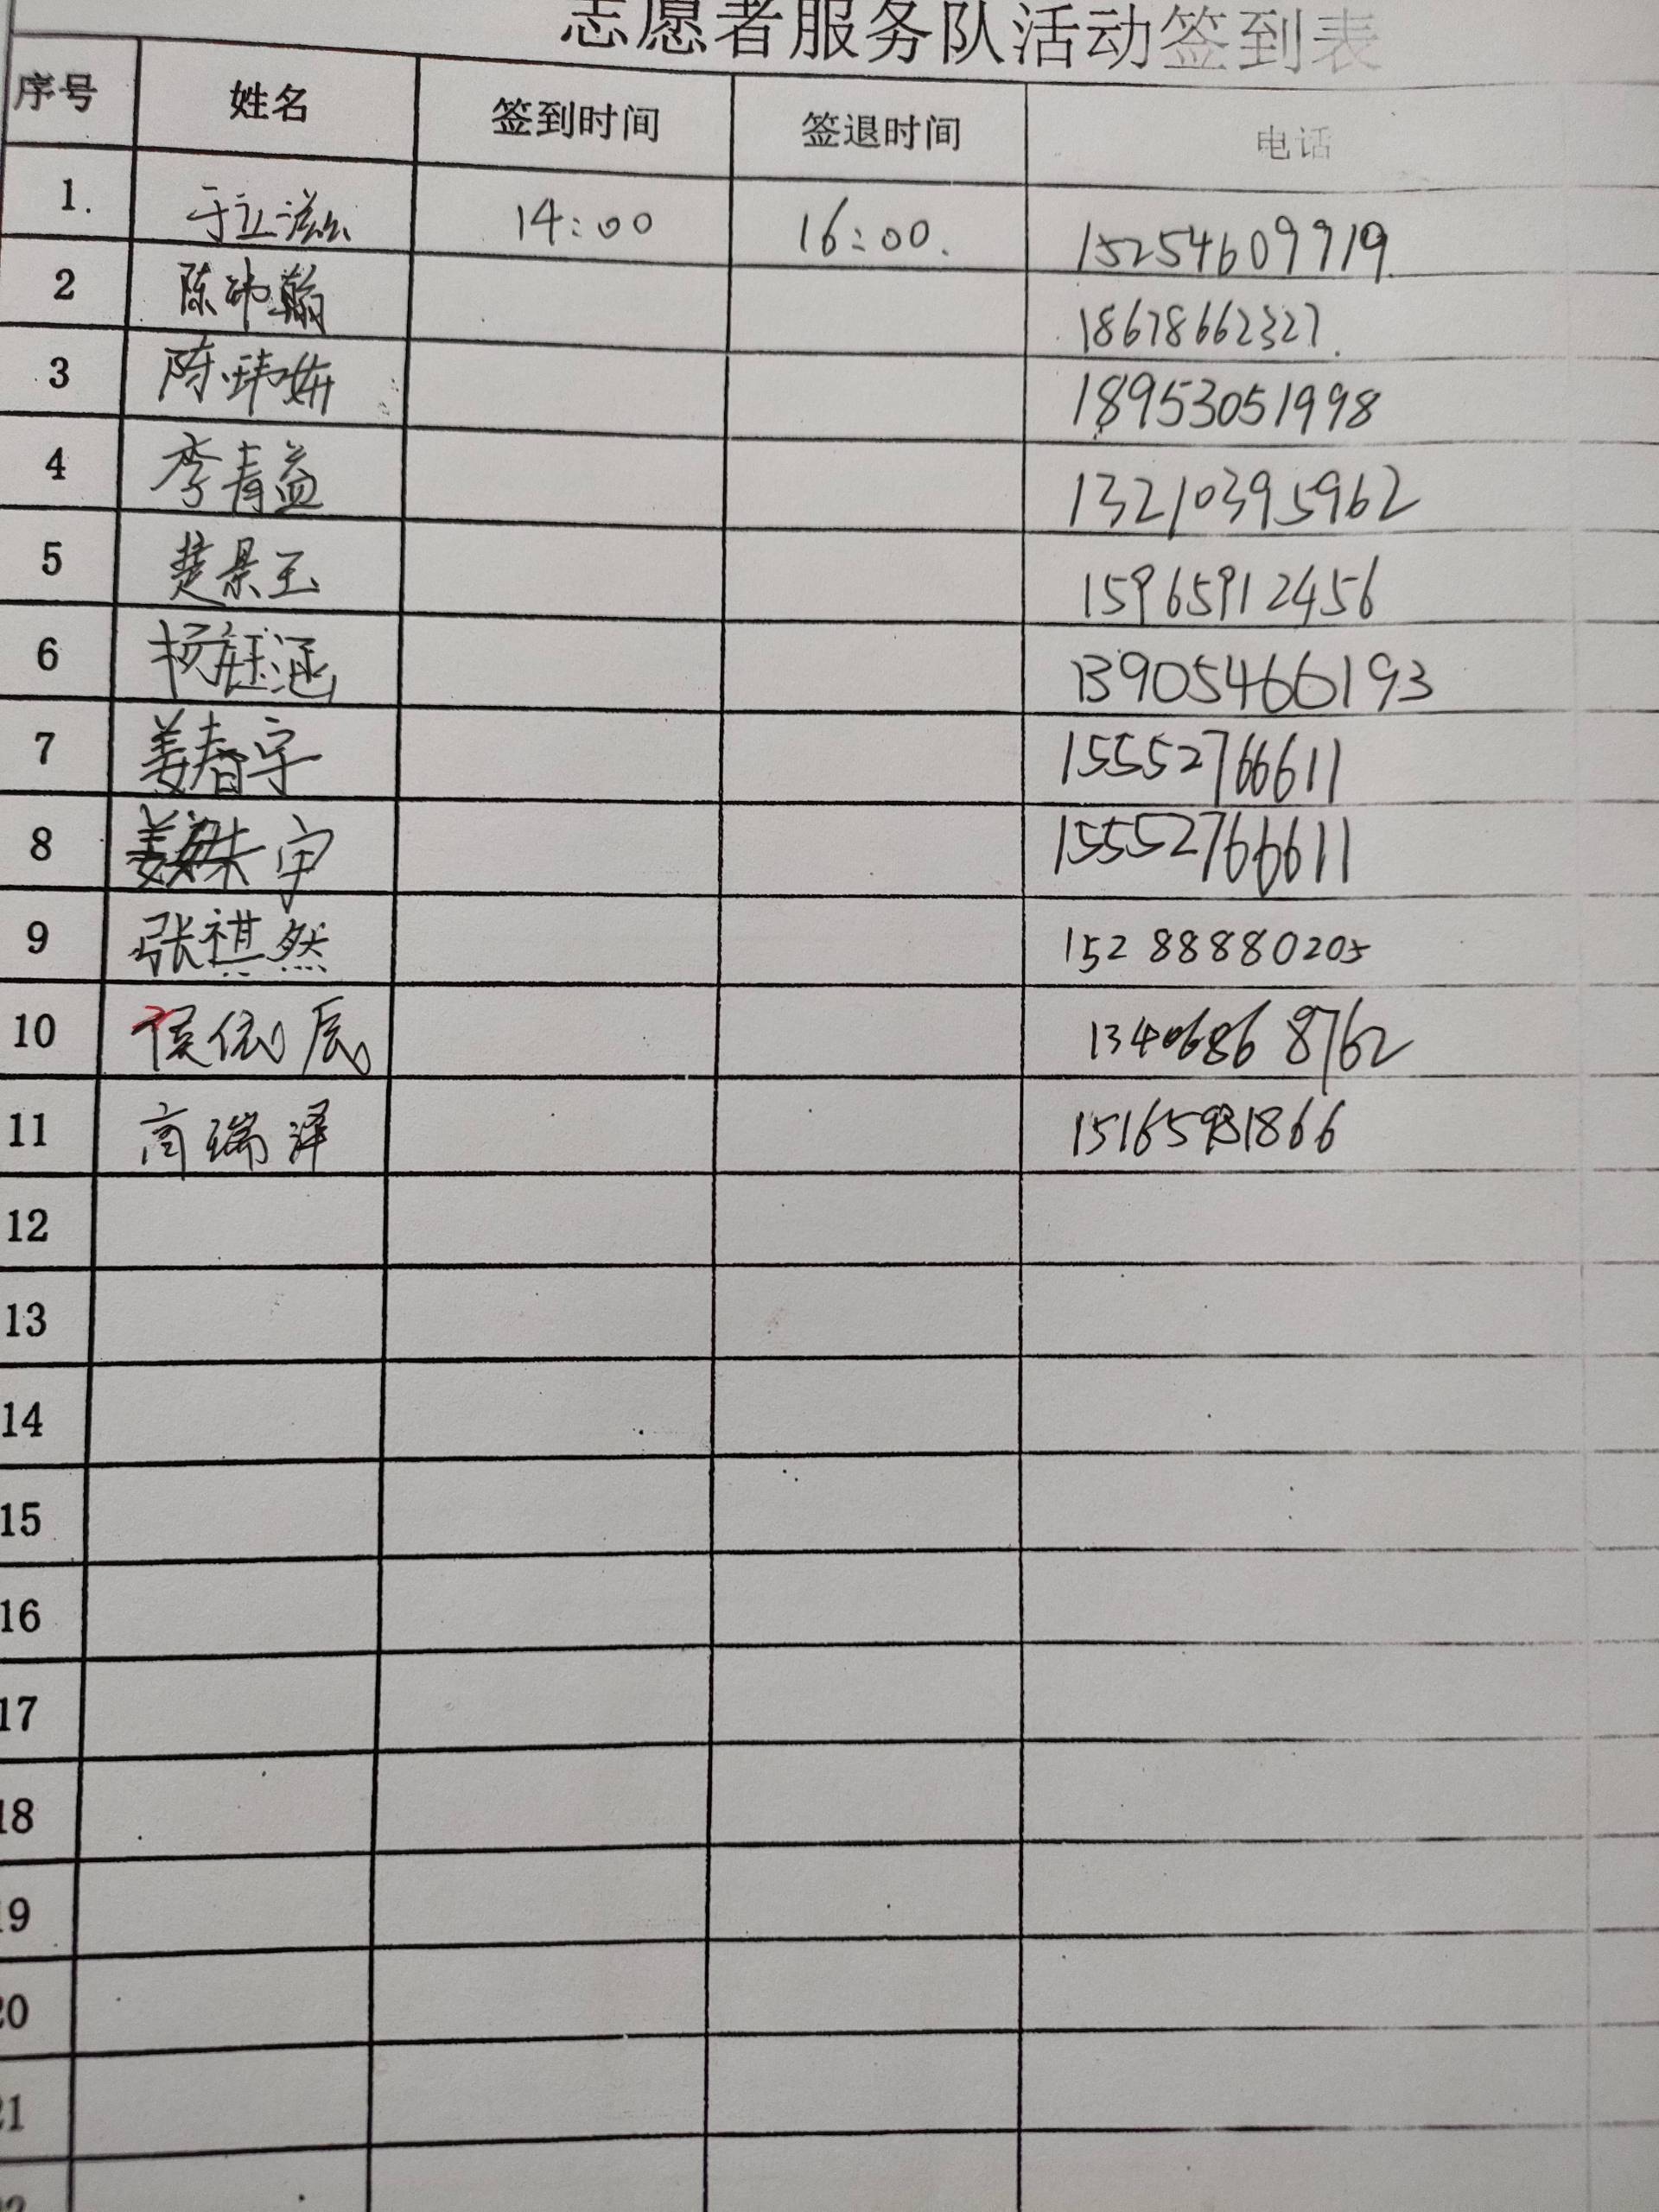 志愿者服务队活动签到表
序号 姓名 签到时间 签退时间 电话
1. 于立滋 14:00 16:00. 15254609719
2 陈玮翰 18678662327.
3 陈玮妍 18953051998
4 李青益 13210395962
5 楚景玉 15965912456
6 杨钰涵 13905466193
7 姜春宇 15552766611
8 宇 15552766611
9 张祺然 15288880205
10 侯依辰 13406868762
11 高瑞泽
12
13
14
15
16
17
18
19
20
21